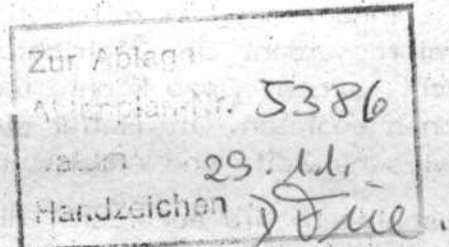 Zur Ablage
Aktenplan-Nr. 5386
29. 11.
Handzeichen